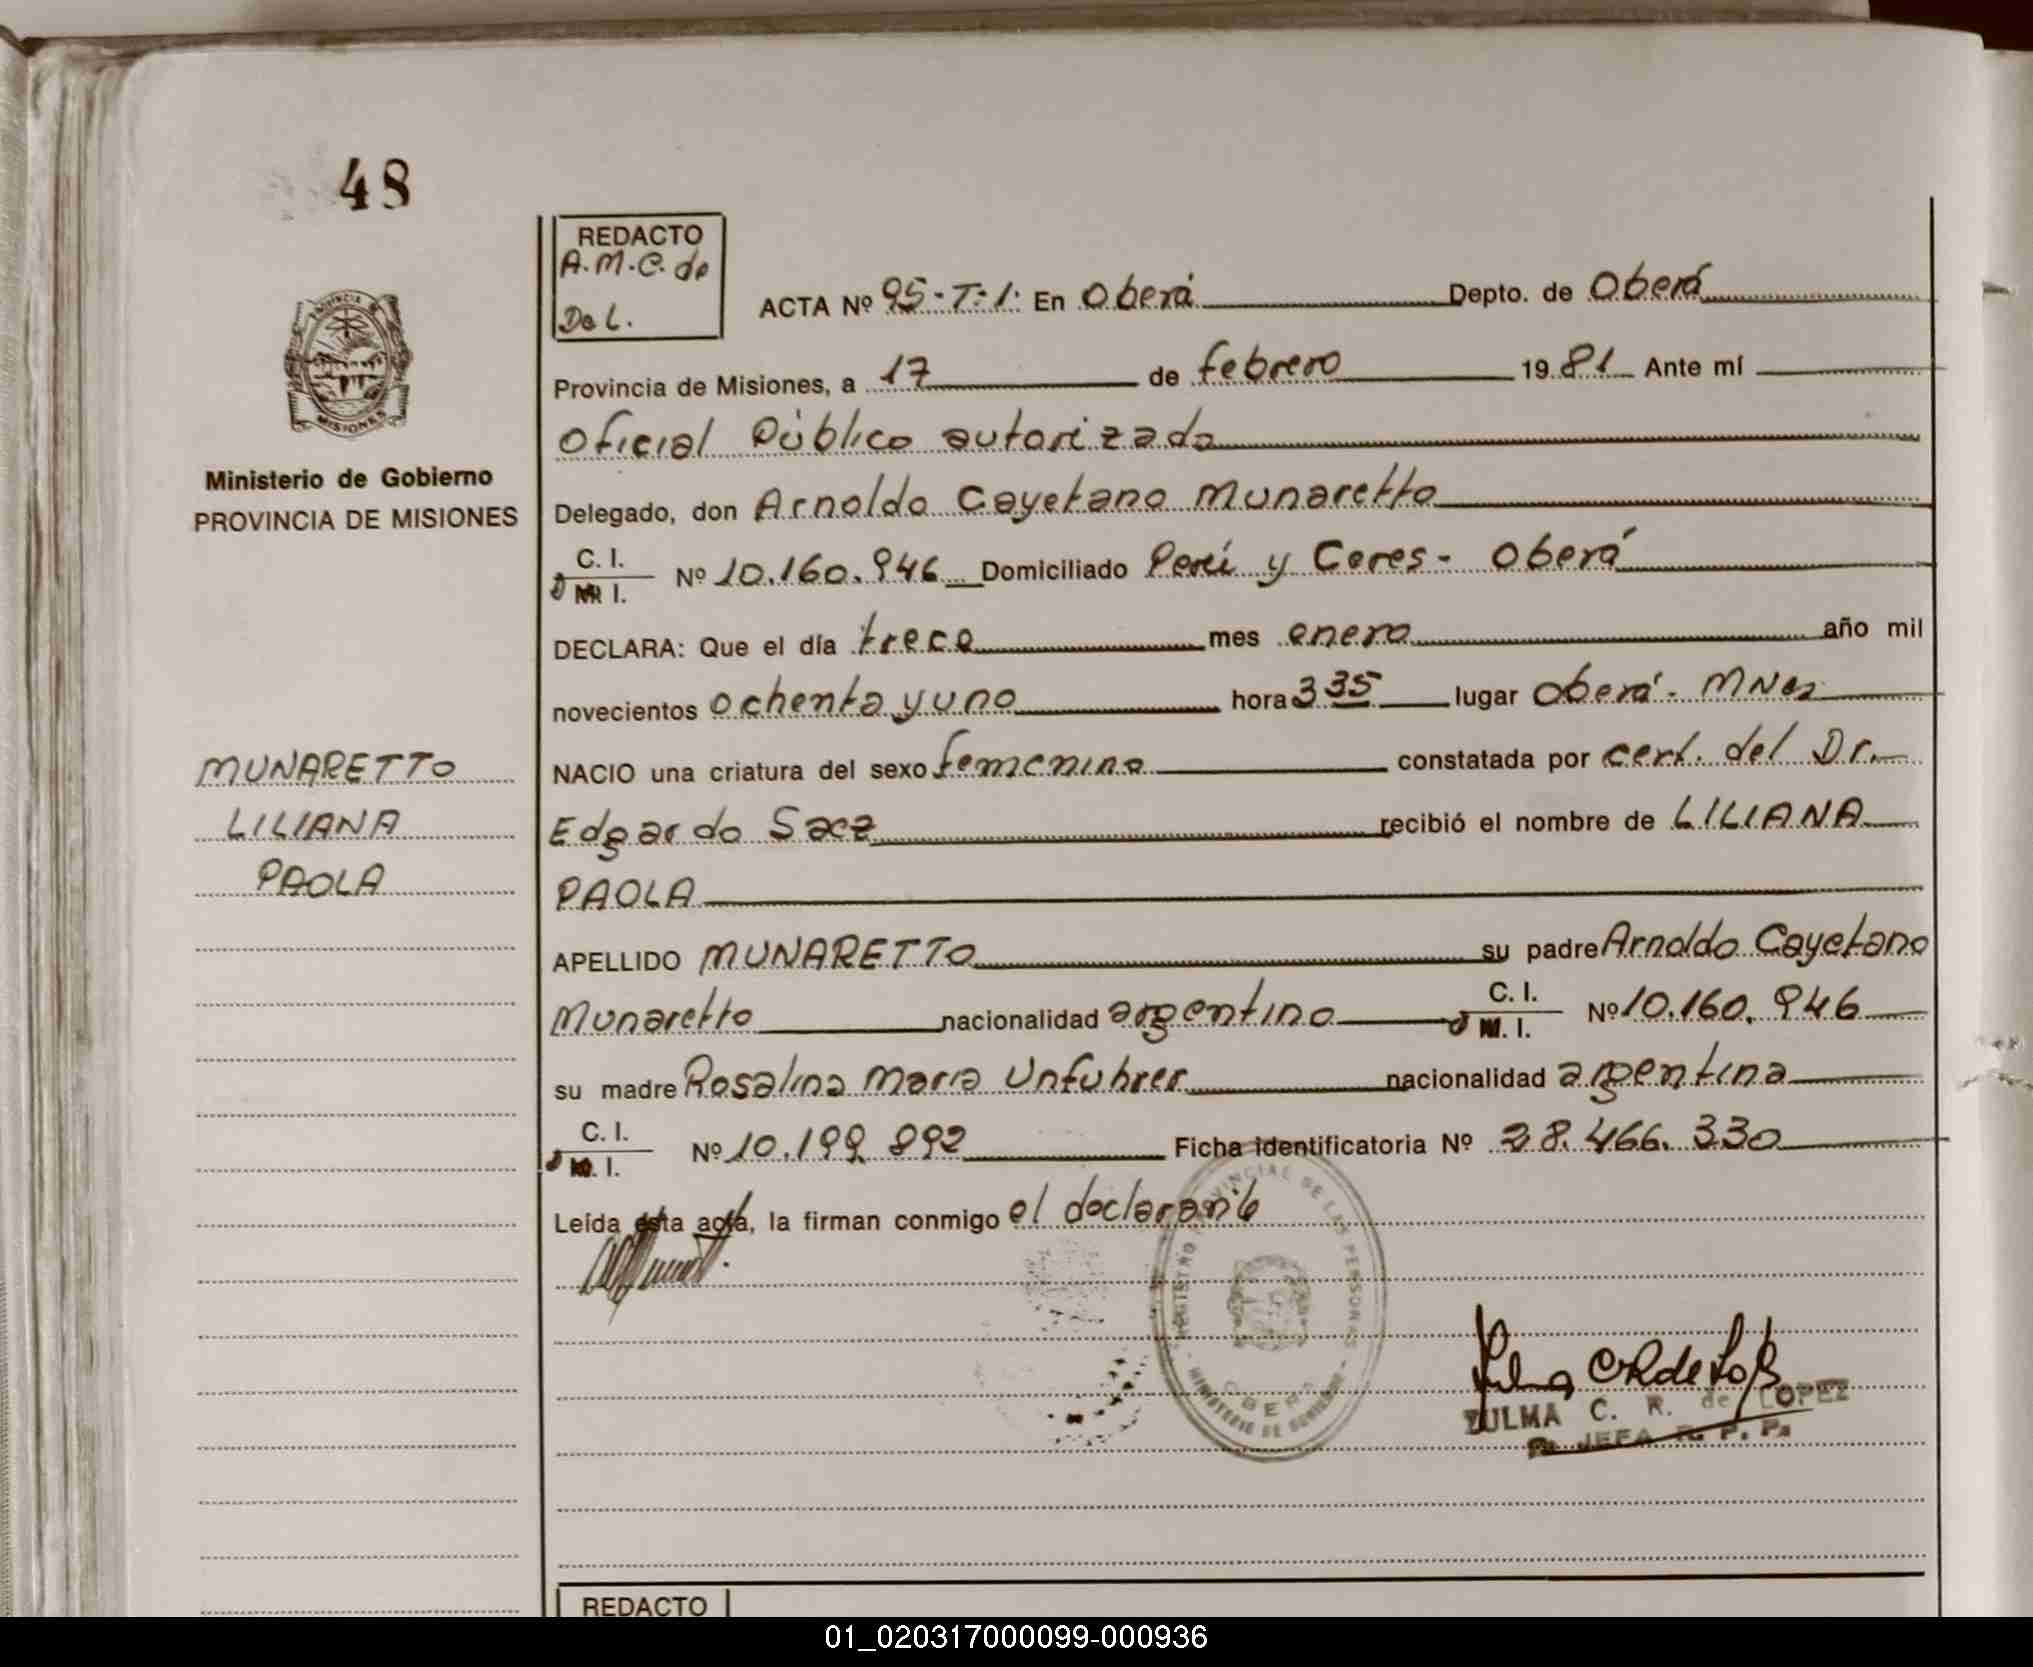 48
REDACTO
A.M.C. de
De L.
ACTA Nº 95-T:1: En Oberá Depto. de Oberá
Provincia de Misiones, a 17 de febrero 1981 Ante mí
Oficial Público autorizado
Ministerio de Gobierno
PROVINCIA DE MISIONES
Delegado, don Arnoldo Cayetano Munaretto
C. I.
M. I. Nº 10.160.946 Domiciliado Perú y Ceres - Oberá
DECLARA: Que el día trece mes enero año mil
novecientos ochenta y uno hora 3 35 lugar Oberá - MNes
MUNARETTO
LILIANA
PAOLA
NACIO una criatura del sexo femenino constatada por cert. del Dr.
Edgardo Saez recibió el nombre de LILIANA
PAOLA
APELLIDO MUNARETTO su padre Arnoldo Cayetano
Munaretto nacionalidad argentino C. I. M. I. Nº 10.160.946
su madre Rosalina Maria Unfuhrer nacionalidad argentina
C. I.
M. I. Nº 10.199.892 Ficha identificatoria Nº 28.466.330
Leída esta acta, la firman conmigo el declarante
REGISTRO PROVINCIAL DE LAS PERSONAS
OBERA
MINISTERIO DE GOBIERNO
ZULMA C. R. de LOPEZ
JEFA R. P. P.
REDACTO
01_020317000099-000936